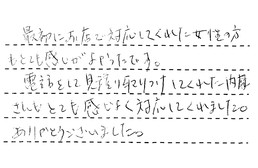 最初にお店で対応してくれた女性の方
もとても感じがよかったです。
電話をして見積り取りつけしてくれた内藤
さんもとても感じよく対応してくれました。
ありがとうございました。